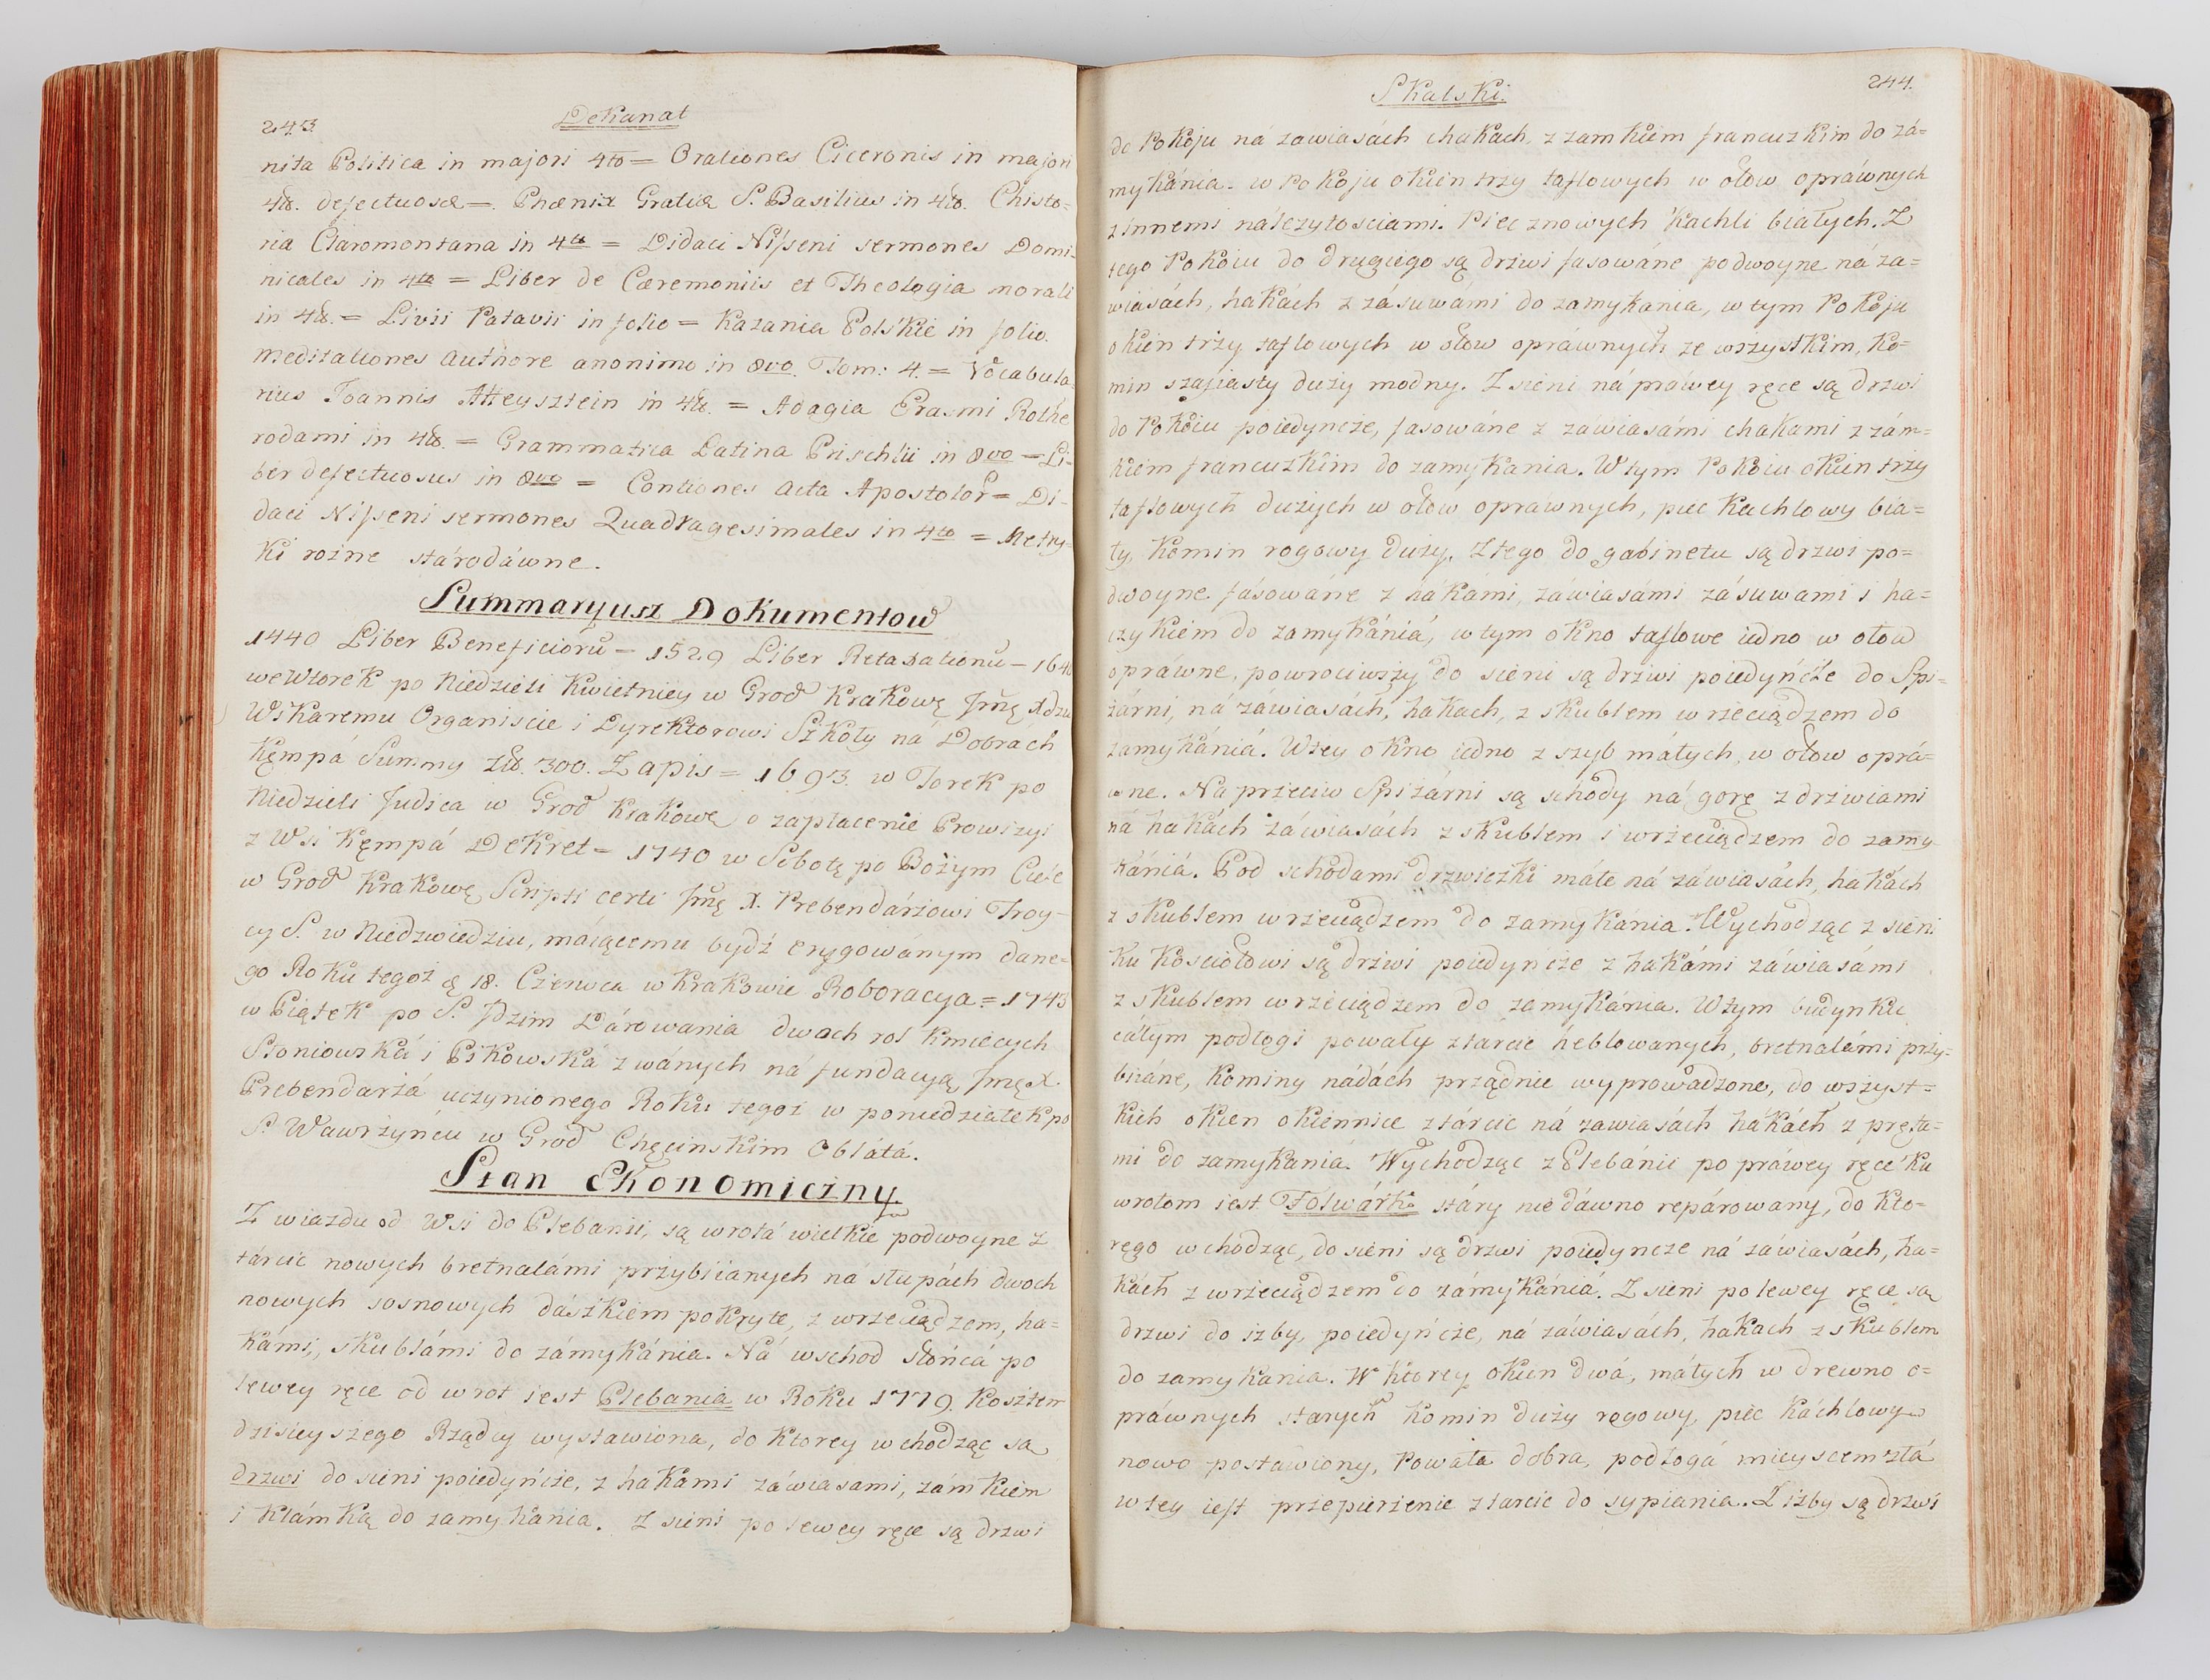 243.
Dekanat
nita Politica in majori 4to = Orationes Ciceronis in majori
4to. defectuosæ =. Phœnix Gratiæ S. Basilius in 4to. Chisto-
ria Claromontana in 4to = Didaci Nisseni sermones Domi-
nicales in 4to = Liber de Cæremoniis et Theologia morali
in 4to. = Livii Patavii in folio = Kazania Polskie in folio.
Meditationes Authore anonimo in 8vo. Tom: 4. = Vocabula
rius Joannis in 4to. = Adagia Erasmi Rothe
rodami in 4to. = Grammatica Latina Prischlii in 8vo = Li-
ber defectuosus in 8vo = Contiones Acta Apostolor = Di-
daci Nisseni sermones Quadragesimales in 4to = Metry-
ki rożne stárodáwne.
Summaryusz Dokumentow
1440 Liber Beneficiorũ = 1529 Liber Retaxationũ = 164
we Wtorek po Niedzieli Kwietniey w Grod Krakowę Jmę Xdzu
Wikaremu Organiscie i Dyrektorowi Szkoły ná Dobrach
Kęmpá Summy złł. 300. Zapis = 1693. w Torek po
Niedzieli Judica w Grod Krakowę o zapłacenie Prowizyi
z Wsi Kęmpá Dekret = 1740 w Sobotę po Bożym Ciéle
w Grod Krakowę Scripti certi Jmę X. Prebendárżowi Troy-
cy S. w Niedzwiedziu, máiącemu bydź erygowánym dane-
go Roku tegoż d 18. Czerwca w Krakowie Roboracya = 1743
w Piątek po S. Jdzim Dárowania dwoch rol Kmiecych
Słoniowská i Pikowská zwánych ná fundacyą Jmę X.
Prebendarżá uczynionego Roku tegoż w poniedziałek po
S. Wawrżyńcu w Grod Chęcinskim Obláta.
Stan Ekonomiczny
Z wiazdu od Wsi do Plebanii, są wrotá wielkie podwoyne z
tárcic nowych bretnalámi przybiianych ná słupách dwoch
nowych sosnowych dászkiem pokryte, z wrzeciądzem, ha-
kámi, skublámi do zámykánia. Ná wschod słońcá po
lewey ręce od wrot iest Plebania w Roku 1779. Kosztem
dzisieyszego Rządcy wystawiona, do ktorey wchodząc są
drzwi do sieni poiedyńcże, z hakámi záwiasami, zámkiem
i klámką do zamykánia. Z sieni po lewey ręce są drzwi
Skalski.
244.
do Pokoju ná zawiasách chakach, z zamkiem francuzkim do zá-
mykánia. w Pokoju okien trzy taflowych w ołow opráwnych
z innemi náleżytosciami. Piec z nowych Kachli białych. Z
tego Pokoiu do drugiego są drzwi fasowáne podwoyne ná za-
wiasách, hakách z zásuwámi do zamykania, w tym Pokoju
okien trzy taflowych w ołow opráwnych ze wszystkim, Ko-
min szafiasty duży modny. Z sieni ná práwey ręce są drzwi
do Pokoiu poiedyncze, fasowáne z zawiasámi chakami z zám-
kiem francuzkim do zamykania. W tym Pokoiu okien trzy
taflowych dużych w ołow opráwnych, piec Kachlowy bia-
ły, Komin rogowy duży. Z tego do gabinetu są drzwi po-
dwoyne fásowáne z hákámi, záwiasámi zásuwami i ha-
czykiem do zamykániá, w tym okno taflowe iedno w ołow
opráwne, powrociwszy do sieni są drzwi poiedyńcże do Spi-
żárni, ná záwiasách, hakach, z skublem wrzeciądzem do
zamykániá. W tey okno iedno z szyb máłych, w ołow oprá-
wne. Naprzeciw Spiżárni są schody ná gorę z drzwiami
ná hakách záwiasách z skublem i wrzeciądzem do zamy
kániá. Pod schodami drzwiczki máłe ná záwiasách, hakách
z skublem wrzeciądzem do zamykánia. Wychodząc z sieni
ku Kosciołowi są drzwi poiedyncze z hakámi záwiasámi
z skublem wrzeciądzem do zamykánia. W tym budynku
cáłym podłogi powały z tarcic héblowanych, bretnalámi przy-
biiáne, Kominy nádách prządnie wyprowadzone, do wszyst-
kich okien okiennice z tárcic ná zawiasách hákách z pręta-
mi do zamykania. Wychodząc z Plebánii po práwey ręce ku
wrotom iest Folwárk stáry niedáwno repárowany, do kto-
rego wchodząc, do sieni są drzwi poiedyncze ná záwiasách, ha-
kách z wrzeciądzem do zámykániá. Z sieni po lewey ręce są
drzwi do izby, poiedyńcze, ná záwiasách, hakach z skublem
do zamykania. W ktorey okien dwá, máłych w drewno o-
práwnych starych Komin duży rogowy, piec káchlowy
nowo postáwiony, Powała dobra, podłogá mieyscem złá
w tey iest przepierzenie z tarcic do sypiania. Z izby są drzwi